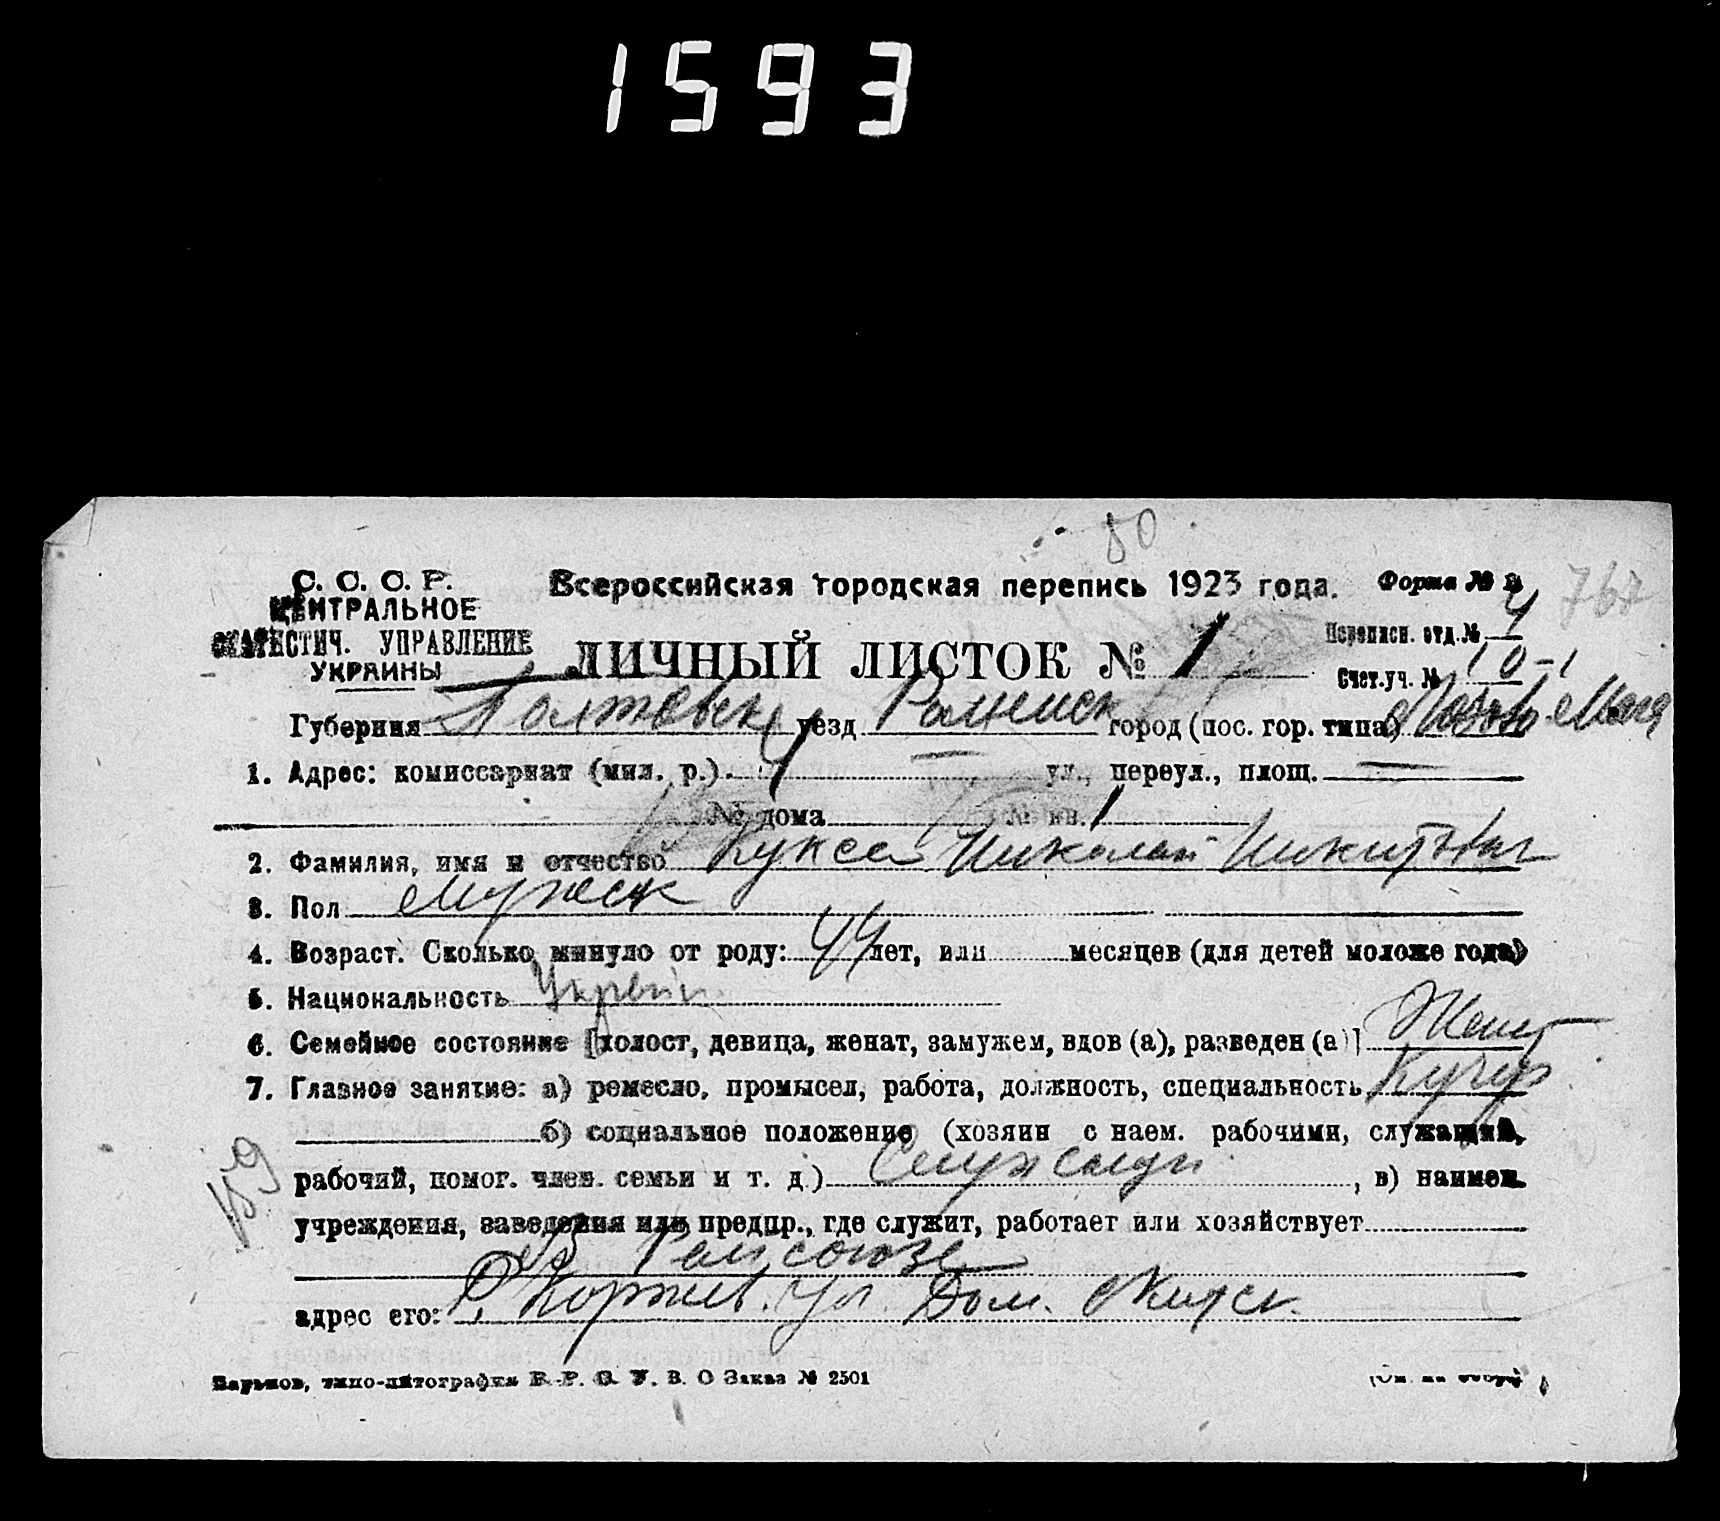 1593
80
С. С. С. Р.
ЦЕНТРАЛЬНОЕ
СТАТИСТИЧ. УПРАВЛЕНИЕ
УКРАИНЫ
Всероссийская городская перепись 1923 года.
Форма № 2
767
ЛИЧНЫЙ ЛИСТОК № 1
Переписн. отд. № 4
Счет. уч. № 10-1
Губерния Полтавск уезд Роменск город (пос. гор. типа)
1. Адрес: комиссариат (мил. р.) 4 ул., переул., площ.
№ дома № кв. 1
2. Фамилия, имя и отчество Куксa Николай Никитович
3. Пол Мужск
4. Возраст. Сколько минуло от роду: 44 лет, или месяцев (для детей моложе года)
5. Национальность
6. Семейное состояние [холост, девица, женат, замужем, вдов (а), разведен (а)] Жен
7. Главное занятие: а) ремесло, промысел, работа, должность, специальность Кучер
б) социальное положение (хозяин с наем. рабочими, служащий,
рабочий, помог. член. семьи и т. д.) Служащи , в) наимен.
учреждения, заведения или предпр., где служит, работает или хозяйствует
в Райсоюзе
адрес его: ул. Дом.
Харьков, типо-литография В. О Заказ № 2501